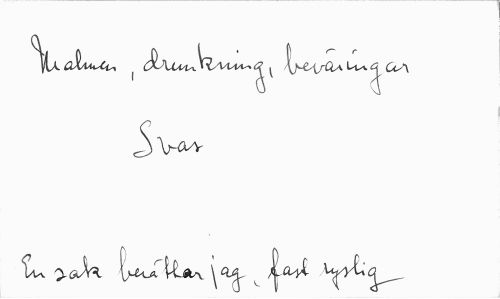 Malmen, drunkning, beväringar
Svar
En sak berättar jag, fast ryslig